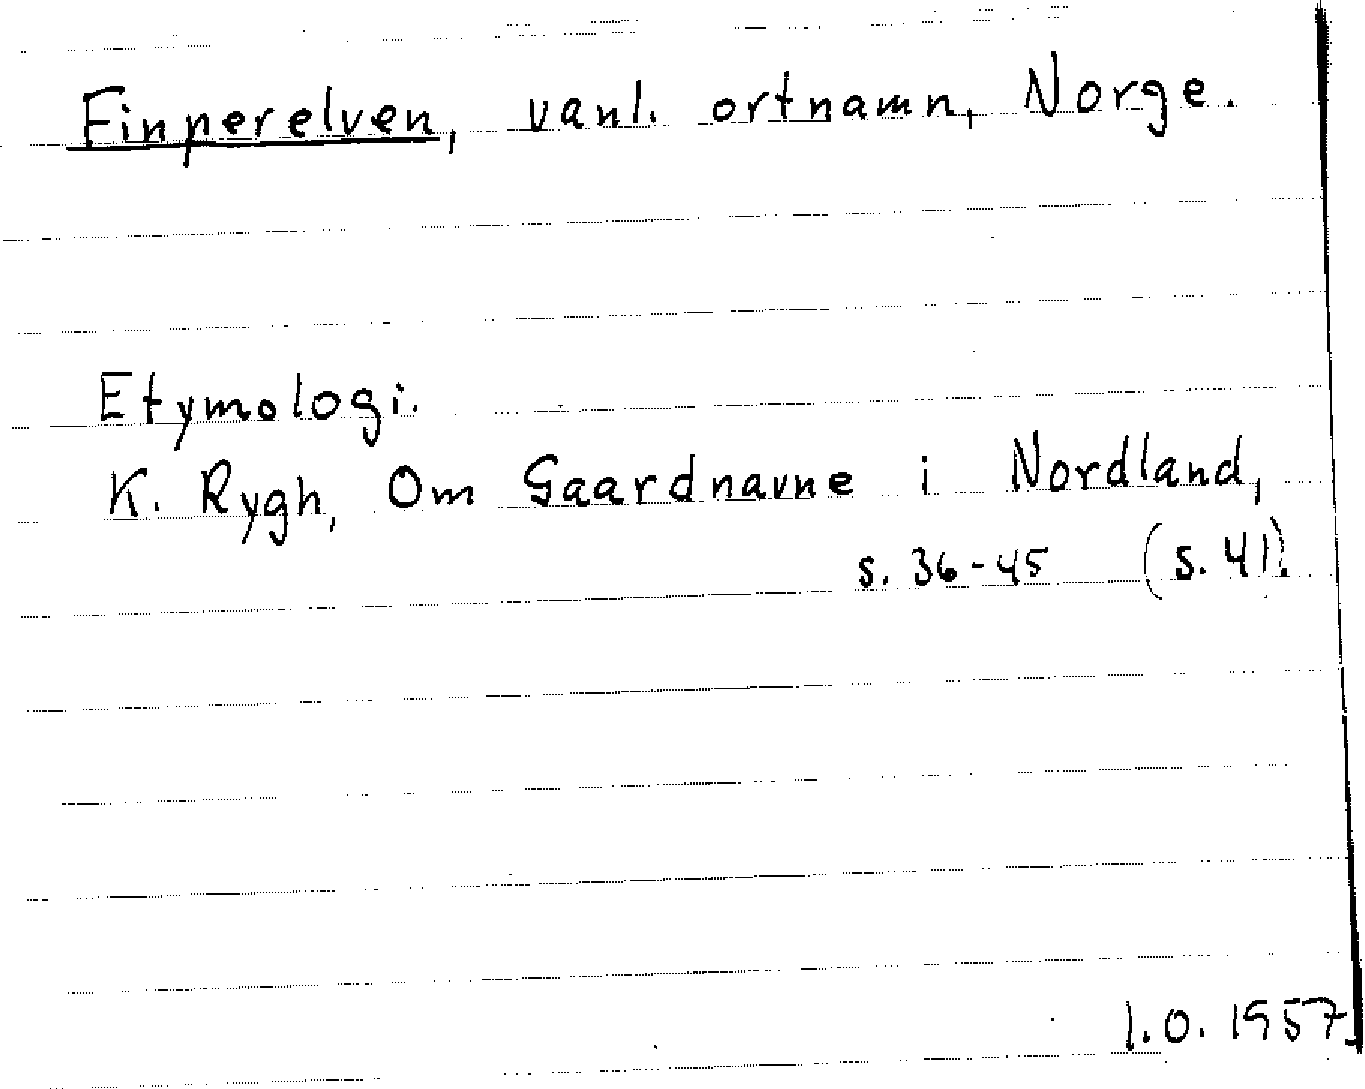 Finperelven, vanl. ortnamn, Norge.
Etymologi.
K. Rygh, Om Gaardnavne i Nordland,
s. 36-45 (s. 41).
I.O. 1957